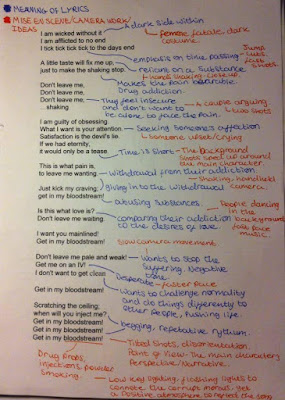 MEANING OF LYRICS
MISE EN SCENE/CAMERA WORK/
IDEAS
A dark side within
I am wicked without it
I am afflicted to no end
I tick tick tick to the days end
femme fatale, dark
costume.
emphasis on time passing
Jump
cuts
fast
shots
A little taste will fix me up,
just to make the shaking stop.
reliant on a substance
hands shaking - close up.
Makes the pain bearable
Drug addiction.
Don't leave me,
Don't leave me,
Don't leave me,
... shaking
They feel insecure
and don't want to
be alone to face the pain.
a couple arguing
two shots
I am guilty of obsessing.
What I want is your attention.
Satisfaction is the devil's lie.
If we had eternity,
it would only be a tease.
Seeking someone's affection
someone upset/crying
Time is short - The background
shots speed up around
the main character.
This is what pain is,
to leave me wanting
withdrawal from their addiction
shaking, handheld
camera.
Just kick my craving
get in my bloodstream!
giving in to the withdrawal
abusing substances.
People dancing
in the
background
fast pace
music.
Is this what love is?
Don't leave me waiting
comparing their addiction
to the desires of love
I want you mainlined!
Get in my bloodstream!
Slow camera movement.
Don't leave me pale and weak!
Get me on an IV!
I don't want to get clean
Wants to stop the
suffering. Negative
tone.
Desperate - faster pace
Get in my bloodstream!
Wants to challenge normality
and do things differently to
other people, pushing life.
Scratching the ceiling,
when will you inject me?
Get in my bloodstream!
Get in my bloodstream!
Get in my bloodstream!
begging, repetative rythum.
Tilted shots, disorientation.
Point of View - the main characters
Perspective/Narrative.
Drug props,
injections, powder
smoking.
Low key lighting, flashing lights to
connote the corrupt morals, yet
a positive atmosphere to reflect the song